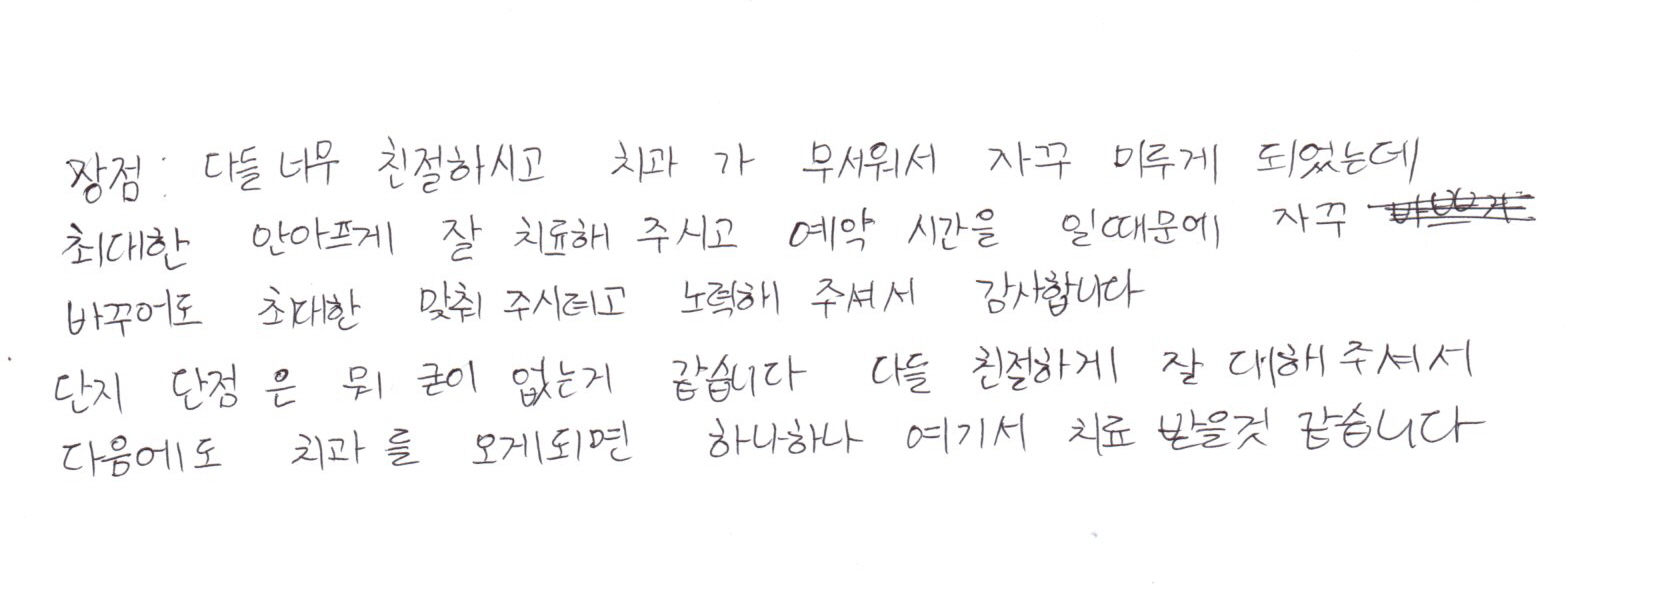 장점: 다들 너무 친절하시고 치과 가 무서워서 자꾸 미루게 되었는데
최대한 안아프게 잘 치료해 주시고 예약 시간을 일때문에 자꾸
바꾸어도 최대한 맞춰 주시려고 노력해 주셔서 감사합니다
단지 단점 은 뭐 굳이 없는거 같습니다 다들 친절하게 잘 대해 주셔서
다음에도 치과 를 오게되면 하나하나 여기서 치료 받을것 같습니다